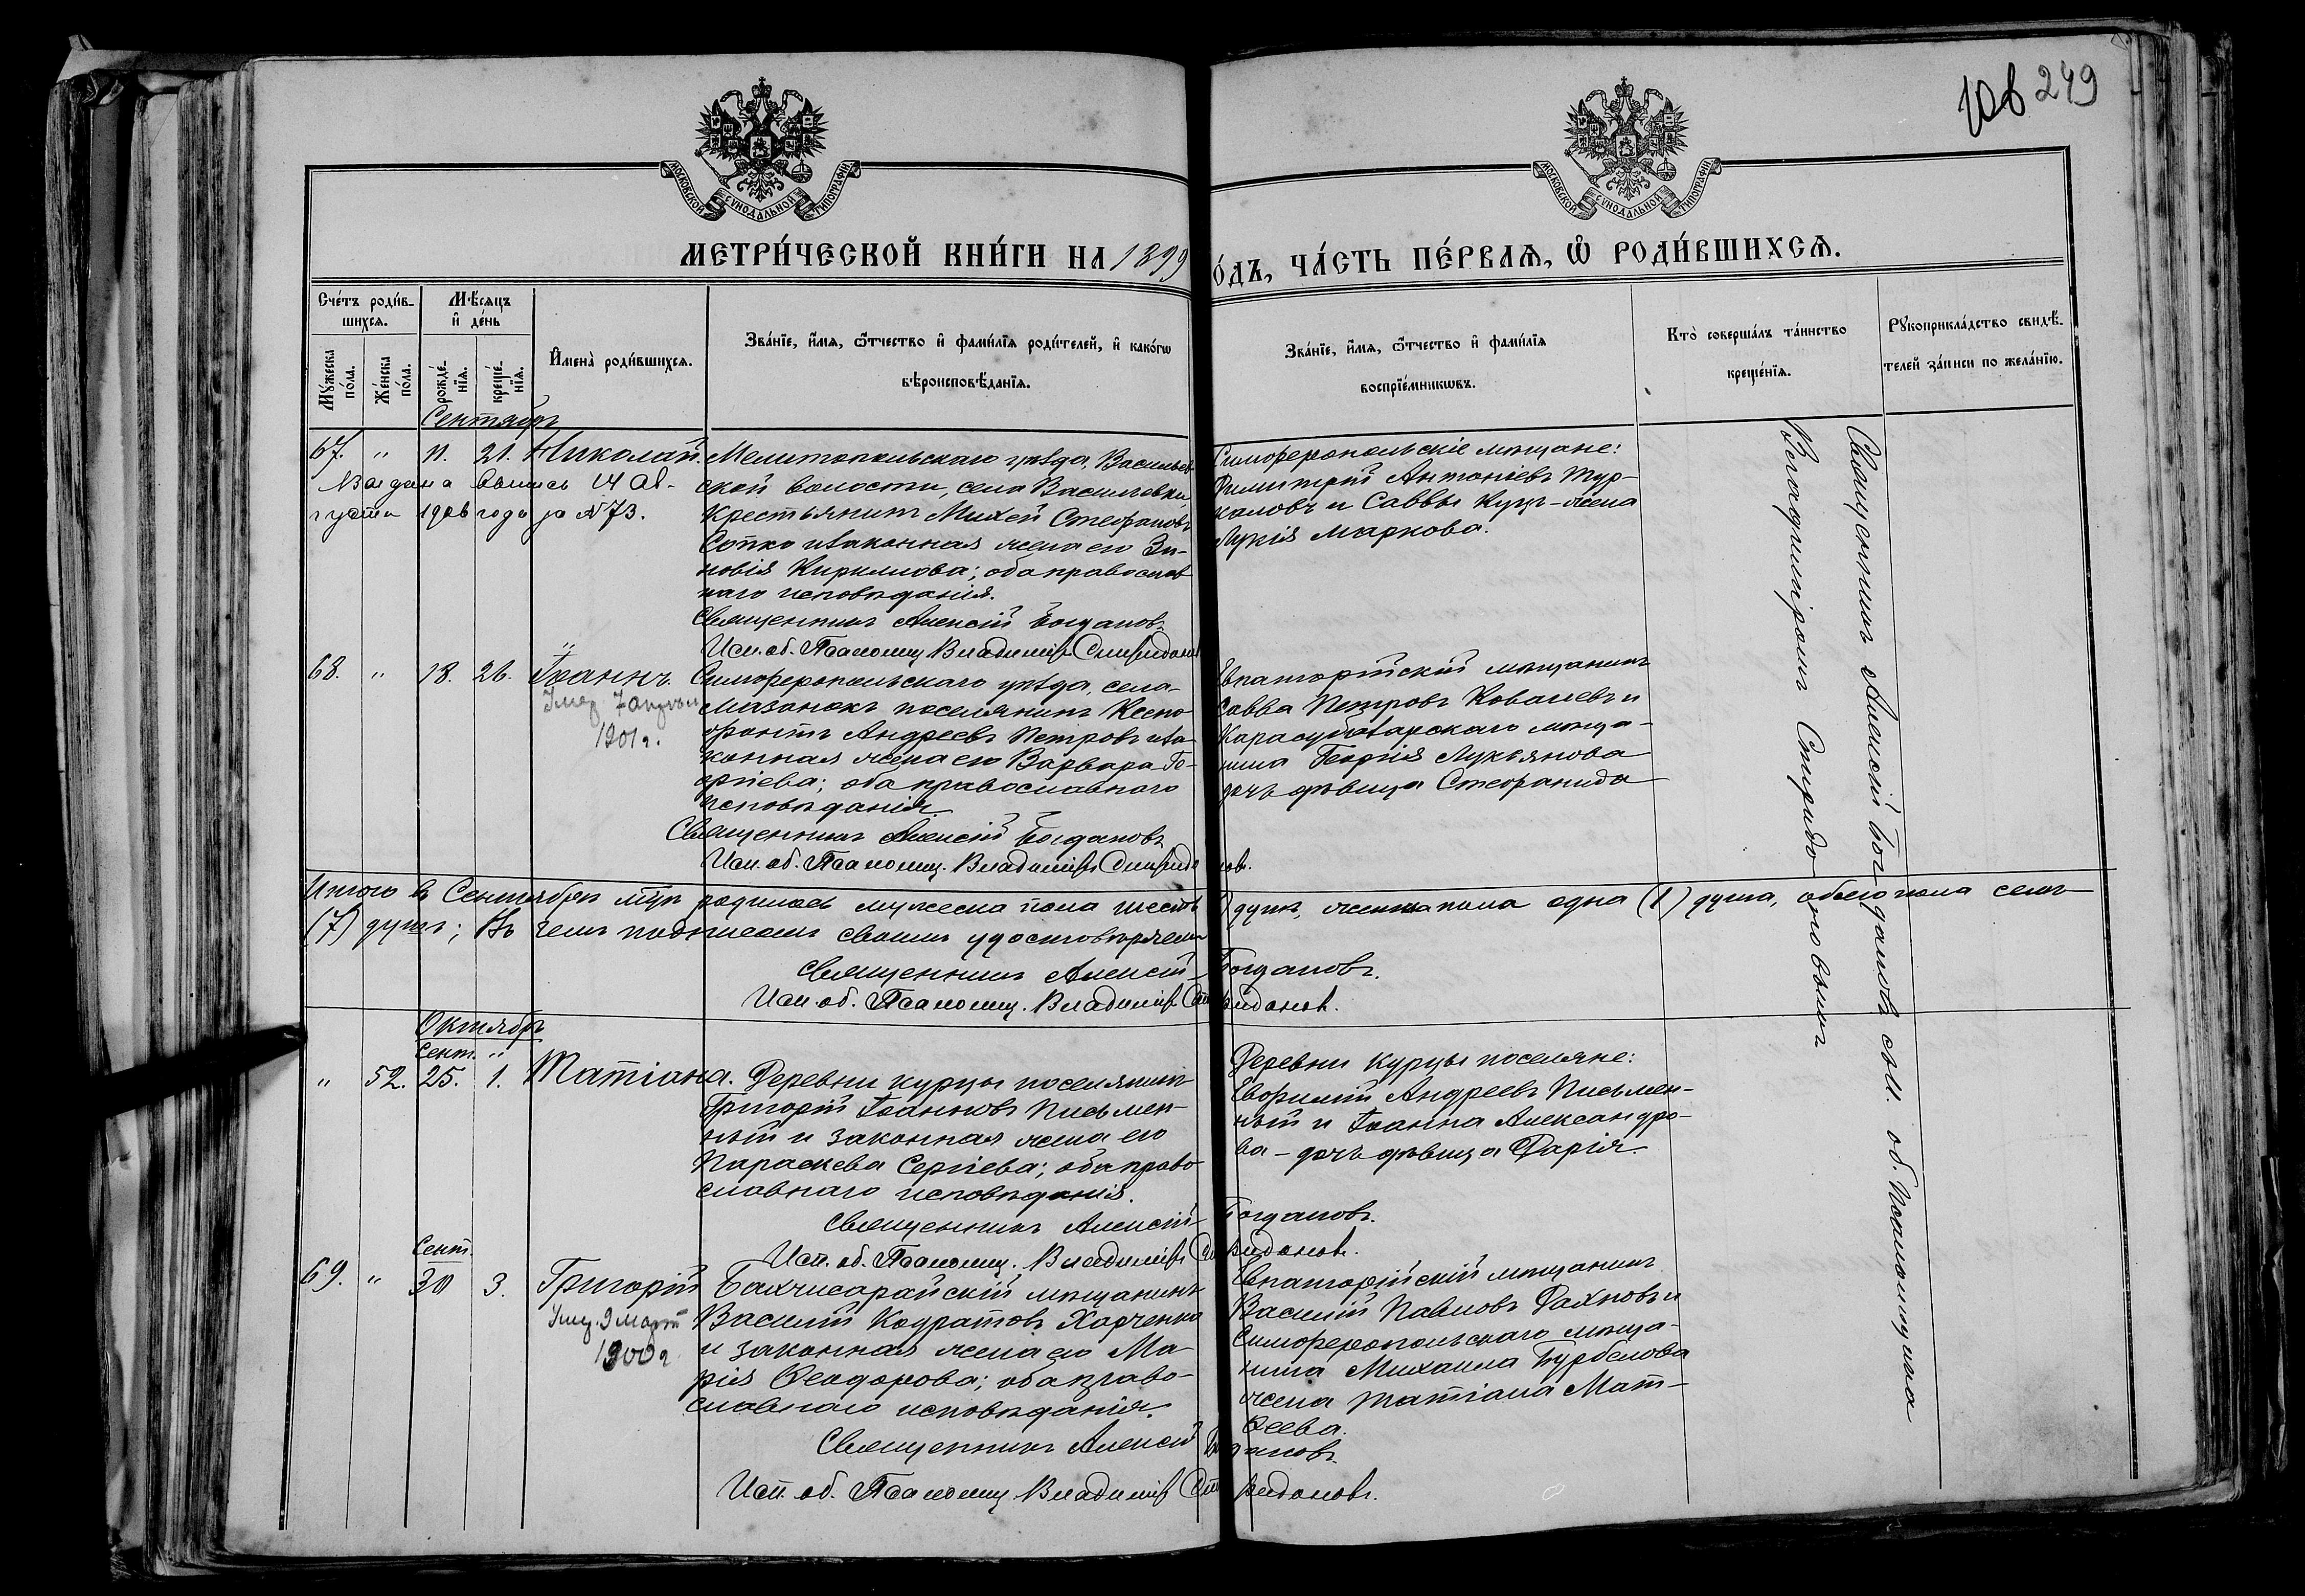 108 249
МОСКОВСКОЙ СУНОДАЛЬНОЙ ТИПОГРАФІИ
МОСКОВСКОЙ СУНОДАЛЬНОЙ ТИПОГРАФІИ
МЕТРИ́ЧЕСКОЙ КНИ́ГИ НА 1899
О́ДЪ, ЧА́СТЬ ПЕ́РВАѦ, Ѡ҆ РОДИ́ВШИХСѦ.
Сче́тъ роди́в-
шихсѧ.
Мꙋ́жеска
по́ла.
Же́нска
по́ла.
Мѣ́сѧцъ
и҆ де́нь
рожде́-
нїѧ.
креще́-
нїѧ.
И҆мена̀ роди́вшихсѧ.
Зва́нїе, и҆́мѧ, ѻ҆́тчество и҆ фами́лїѧ роди́телей, и҆ како́гѡ
вѣроисповѣ́данїѧ.
Зва́нїе, и҆́мѧ, ѻ҆́тчество и҆ фами́лїѧ
воспрїе́мникѡвъ.
Кто̀ соверша́лъ та́инство
креще́нїѧ.
Рꙋкоприкла́дство свидѣ́-
телей за́писи по жела́нїю.
Сентябрь
67. " 11. 21. Николай.
Выдана выпись 14 ав-
густа 1908 года за №73.
Мелитопольскаго уѣзда, Васильев-
ской волости, села Васильевки
крестьянинъ Михей Стефановъ
Сопко и законная жена его Зи-
новія Кириллова; оба православ
наго исповѣданія.
Священникъ Алексій Богдановъ
Исп. об. Псаломщ. Владиміръ Спиридонов
Симферопольскіе мѣщане:
Димитрій Антоніевъ Тур-
каловъ и Саввы Куца-жена
Лукія Маркова.
68. " 18. 26. Іоаннъ.
Умер. 7 апрѣля
1901 г.
Симферопольскаго уѣзда, села
Мазанокъ поселянинъ Ксено-
фонтъ Андреевъ Петровъ и за-
конная жена его Варвара Ге-
оргіева; оба православнаго
исповѣданія.
Священникъ Алексій Богдановъ
Исп. об. Псаломщ. Владиміръ Спиридонов.
Евпаторійскій мѣщанинъ
Савва Петровъ Ковалевъ и
Карасубазарскаго мѣща-
нина Георгія Лукьянова
дочь дѣвица Стефанида
Итого въ Сентябрѣ м-цѣ родилось мужеска пола шесть душъ, женска пола одна (1) душа, обоего пола семь
(7) душъ; Въ чемъ подписомъ своимъ удостовѣряемъ
Священникъ Алексій Богдановъ.
Исп. об. Псаломщ. Владиміръ Спиридонов.
Октябрь
Сент. "
" 52. 25. 1. Татіана.
Деревни Курцы поселянинъ
Григорій Іоанновъ Письмен-
ный и законная жена его
Параскева Сергіева; оба право
славнаго исповѣданія.
Священникъ Алексій Богдановъ.
Исп. об. Псаломщ. Владиміръ Спиридонов.
Деревни Курцы поселяне:
Евфимій Андреевъ Письмен-
ный и Іоанна Александро-
ва - дочь дѣвица Дарія
Сент.
69. " 30 3. Григорій
Умер. 9 март
1900 г
Бахчисарайскій мѣщанинъ
Василій Кодратовъ Харченко
и законная жена его Ма-
рія Ѳеодорова; оба право-
славнаго исповѣданія.
Священникъ Алексій Богдановъ.
Исп. об. Псаломщ. Владиміръ Спиридоновъ.
Евпаторійскій мѣщанинъ
Василій Павловъ Дахновъ и
Симферопольскаго мѣща-
нина Михаила Бурбелова
жена Татіана Мат-
ѳеева.
Священникъ Алексій Богдановъ съ И. об. Псаломщика
Владиміромъ Спиридоновымъ